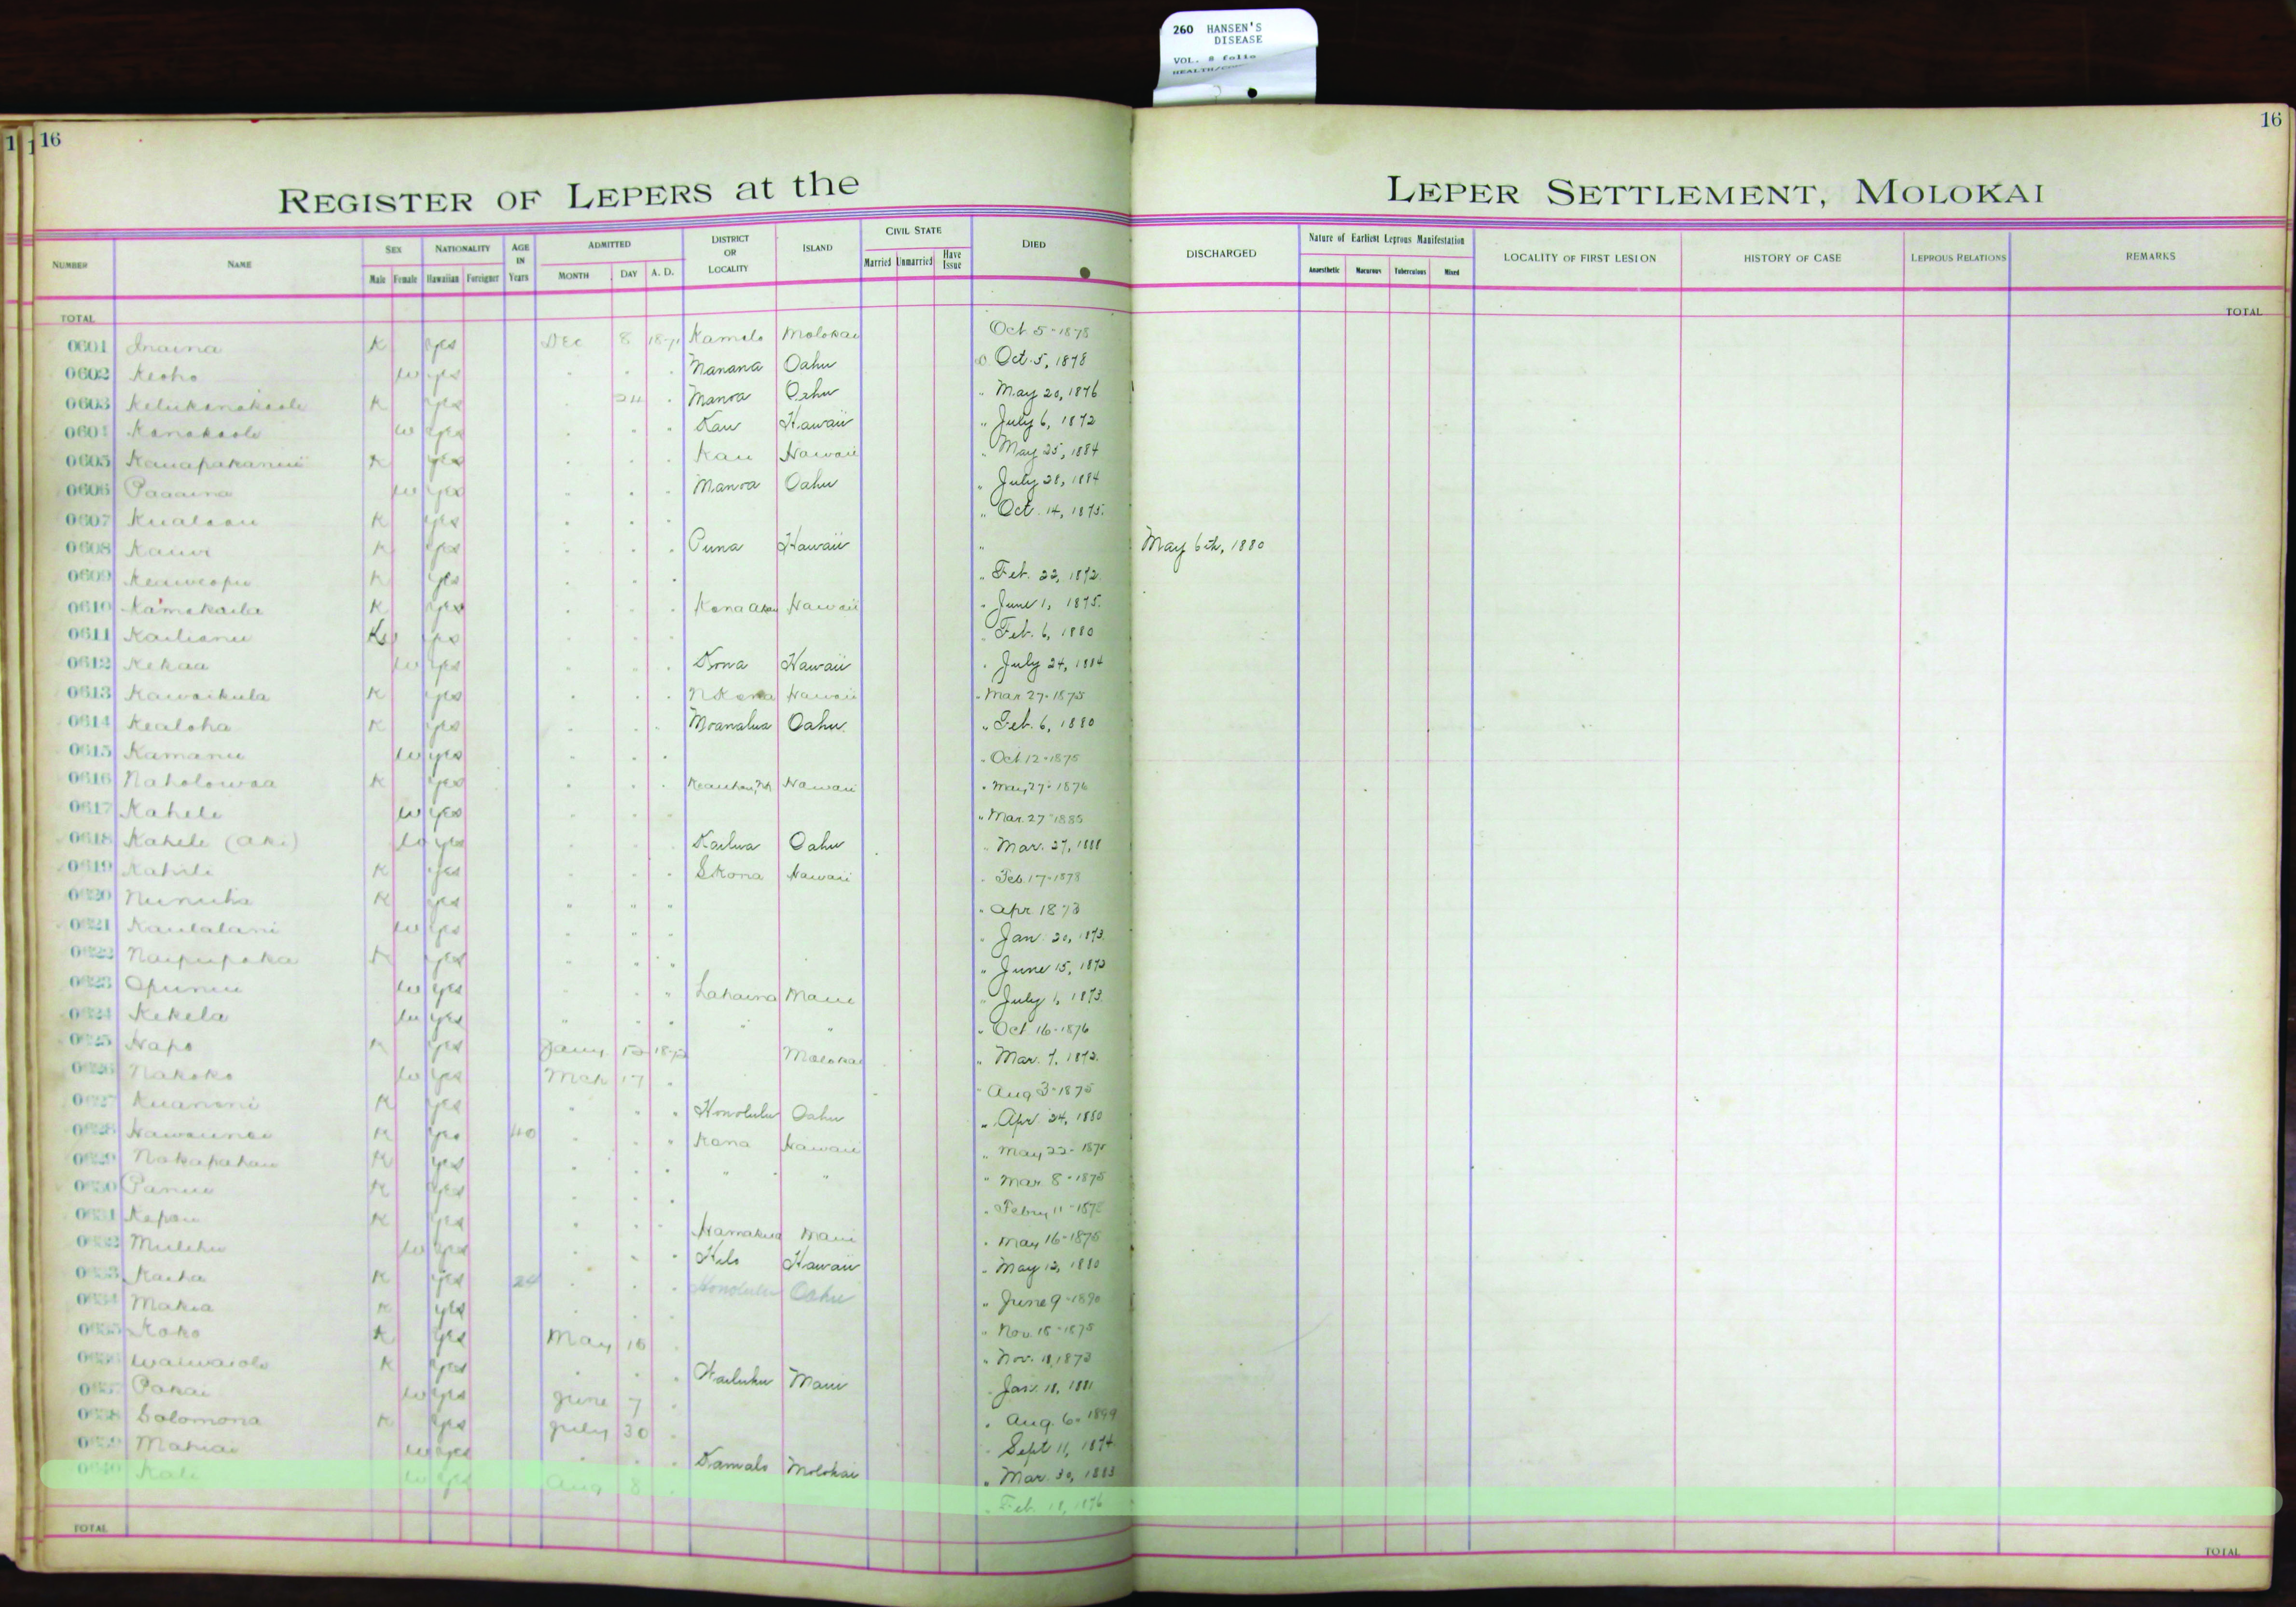 260 HANSEN'S
DISEASE
VOL. 8 folio
16
16
REGISTER OF LEPERS at the LEPER SETTLEMENT, MOLOKAI
NUMBER NAME SEX Male Female NATIONALITY Hawaiian Foreigner AGE IN Years ADMITTED MONTH DAY A. D. DISTRICT OR LOCALITY ISLAND CIVIL STATE Married Unmarried Have Issue DIED DISCHARGED Nature of Earliest Leprous Manifestation Anaesthetic Macurous Tuberculous Mixed LOCALITY OF FIRST LESION HISTORY OF CASE LEPROUS RELATIONS REMARKS
TOTAL TOTAL
0601 Inaina K yes Dec 8 1871 Kamalo Molokai Oct 5-1878
0602 Keoho w yes Manana Oahu Oct. 5, 1878
0603 K yes 24 Manoa Oahu " May 20, 1876
0604 Kanakaole w yes Kau Hawaii " July 6, 1872
0605 K yes Kau Hawaii " May 25, 1884
0606 Paaaina w yes Manoa Oahu " July 28, 1884
0607 Kualaau K yes " Oct. 14, 1875.
0608 Kauwi K yes Puna Hawaii " May 6th, 1880
0609 Keaweopu K yes " Feb. 22, 1872.
0610 Kamakaila K yes Kona Akau Hawaii " June 1, 1875.
0611 Kailianu yes Feb. 6, 1880
0612 Kekaa w yes Kona Hawaii " July 24, 1884
0613 Kawaikula K yes N Kona Hawaii " Mar 27-1875
0614 Kealoha K yes Moanalua Oahu " Feb. 6, 1880
0615 Kamanu w yes " Oct 12-1875
0616 Naholowaa K yes Hawaii " May 27-1876
0617 Kahele w yes " Mar. 27-1885
0618 Kahele (Aki) w yes Kailua Oahu Mar. 27, 1888
0619 Kahili K yes S Kona Hawaii Feb. 17-1878
0620 K yes " " " " Apr 1873
0621 Kaulalani w yes " Jan. 20, 1873.
0622 Naipupaka K yes " June 15, 1873
0623 Opunui w yes Lahaina Maui " July 1, 1873.
0624 Kekela w yes " " " Oct 16-1876
0625 Hapo K yes Jany 1872 Molokai " Mar. 7, 1872.
0626 Nakoko w yes Mch 17 " Aug 3-1875
0627 Kuanoni K yes Honolulu Oahu " Apr. 24, 1880
0628 K yes 40 Kona Hawaii " May 22-1875
0629 Nakapahau K yes " " " Mar. 8-1875
0630 Panui K yes " Febry 11-1878
0631 Kapau K yes Hamakua Maui " May 16-1875
0632 Mulehu w yes Hilo Hawaii " May 12, 1880
0633 Kaiha K yes 24 Honolulu Oahu " June 9-1890
0634 Makia K yes " Nov. 18-1875
0635 Koko K yes May 15 " Nov. 11, 1873
0636 Waiwaiole K yes Wailuku Maui Jan. 18, 1881
0637 Pakai w yes June 7 " Aug. 6. 1899
0638 Solomona K yes July 30 Sept 11, 1874
0639 Mahiai w yes Kamalo Molokai " Mar. 30, 1883
0640 Kali w yes Aug 8 " Feb. 18, 1876
TOTAL TOTAL